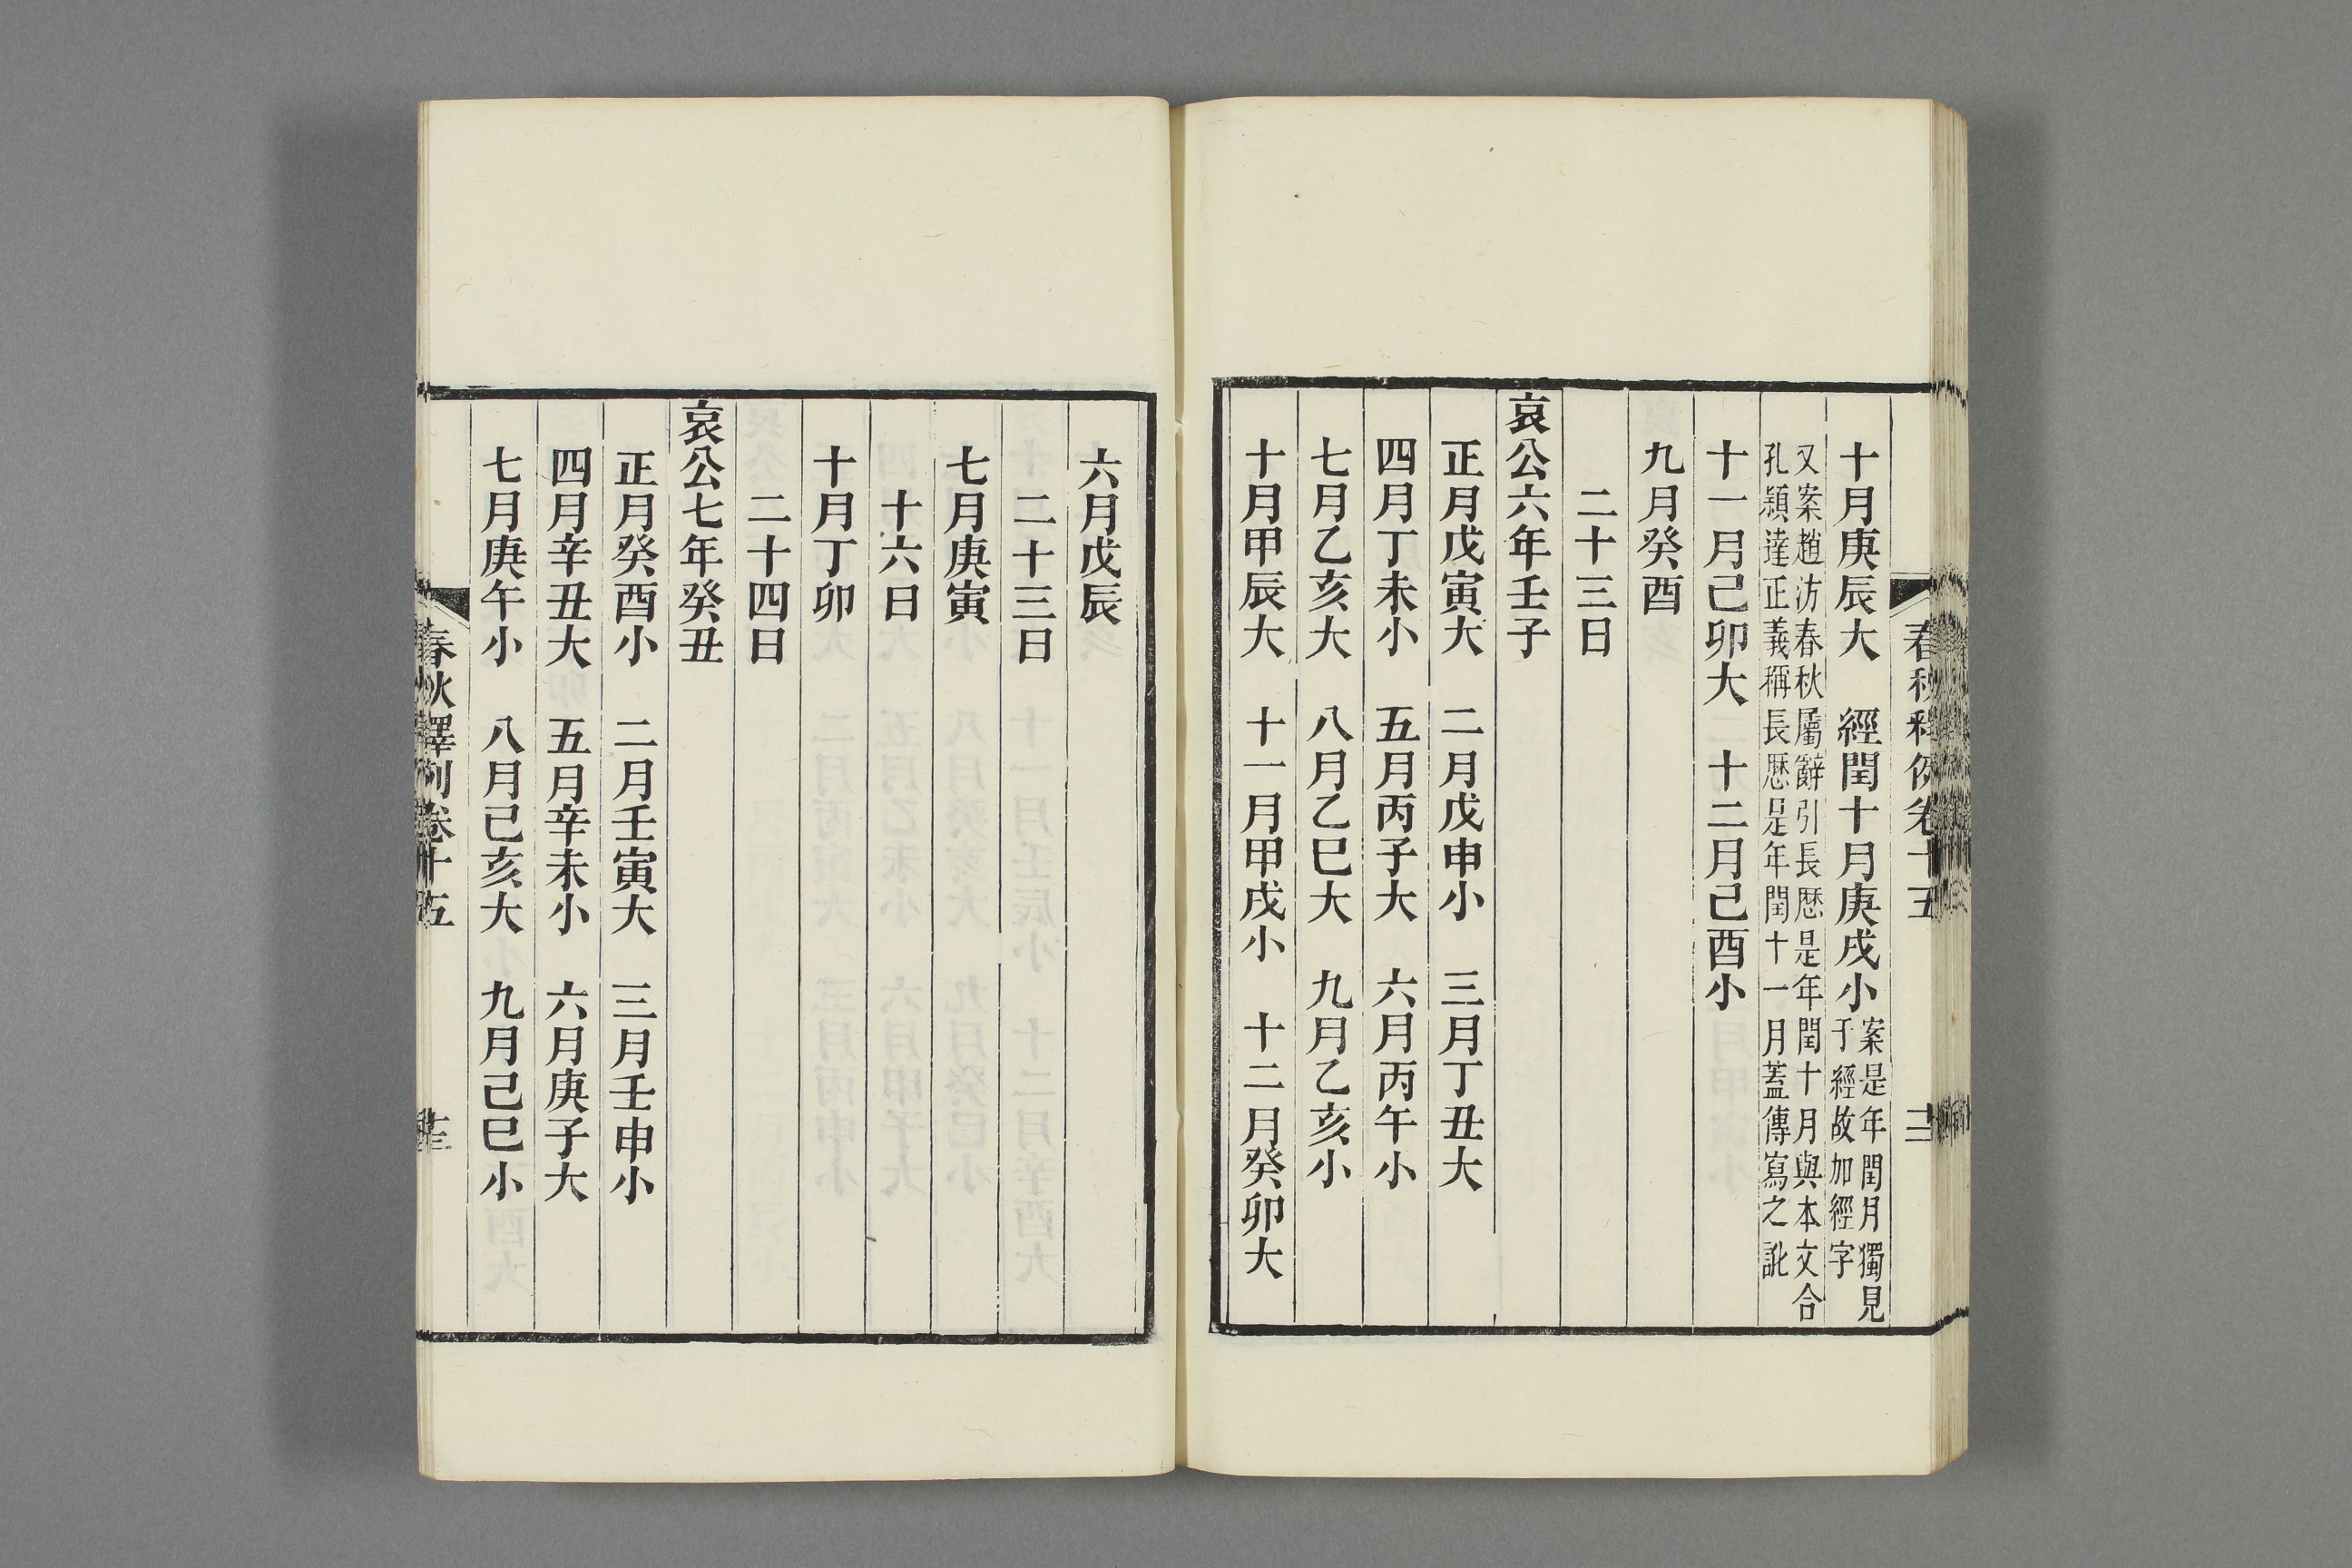 春秋釋例卷十五
十月庚辰大　經閏十月庚戌小案是年閏月獨見
于經故加經字
又案趙汸春秋屬辭引長厯是年閏十月與本文合
孔穎達正義稱長厯是年閏十一月蓋傳寫之訛
十一月己卯大　十二月己酉小
九月癸酉
二十三日
哀公六年壬子
正月戊寅大　二月戊申小　三月丁丑大
四月丁未小　五月丙子大　六月丙午小
七月乙亥大　八月乙巳大　九月乙亥小
十月甲辰大　十一月甲戌小　十二月癸卯大
六月戊辰
二十三日
七月庚寅
十六日
十月丁卯
二十四日
哀公七年癸丑
正月癸酉小　二月壬寅大　三月壬申小
四月辛丑大　五月辛未小　六月庚子大
七月庚午小　八月己亥大　九月己巳小
春秋釋例卷十五